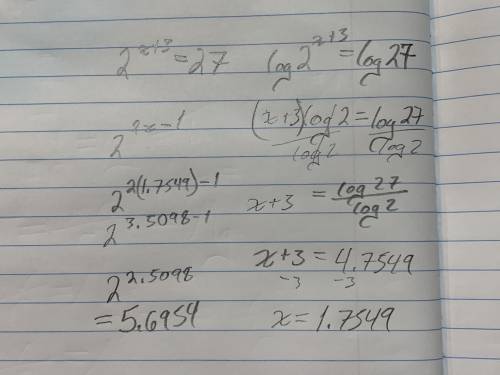 2^{x+3} = 27
2^{2x-1}
2^{2(1.7549)-1}
2^{3.5098-1}
2^{2.5098}
= 5.6954
log 2^{x+3} = log 27
(x+3) log 2 / log 2 = log 27 / log 2
x+3 = log 27 / log 2
x+3 = 4.7549
-3 -3
x = 1.7549